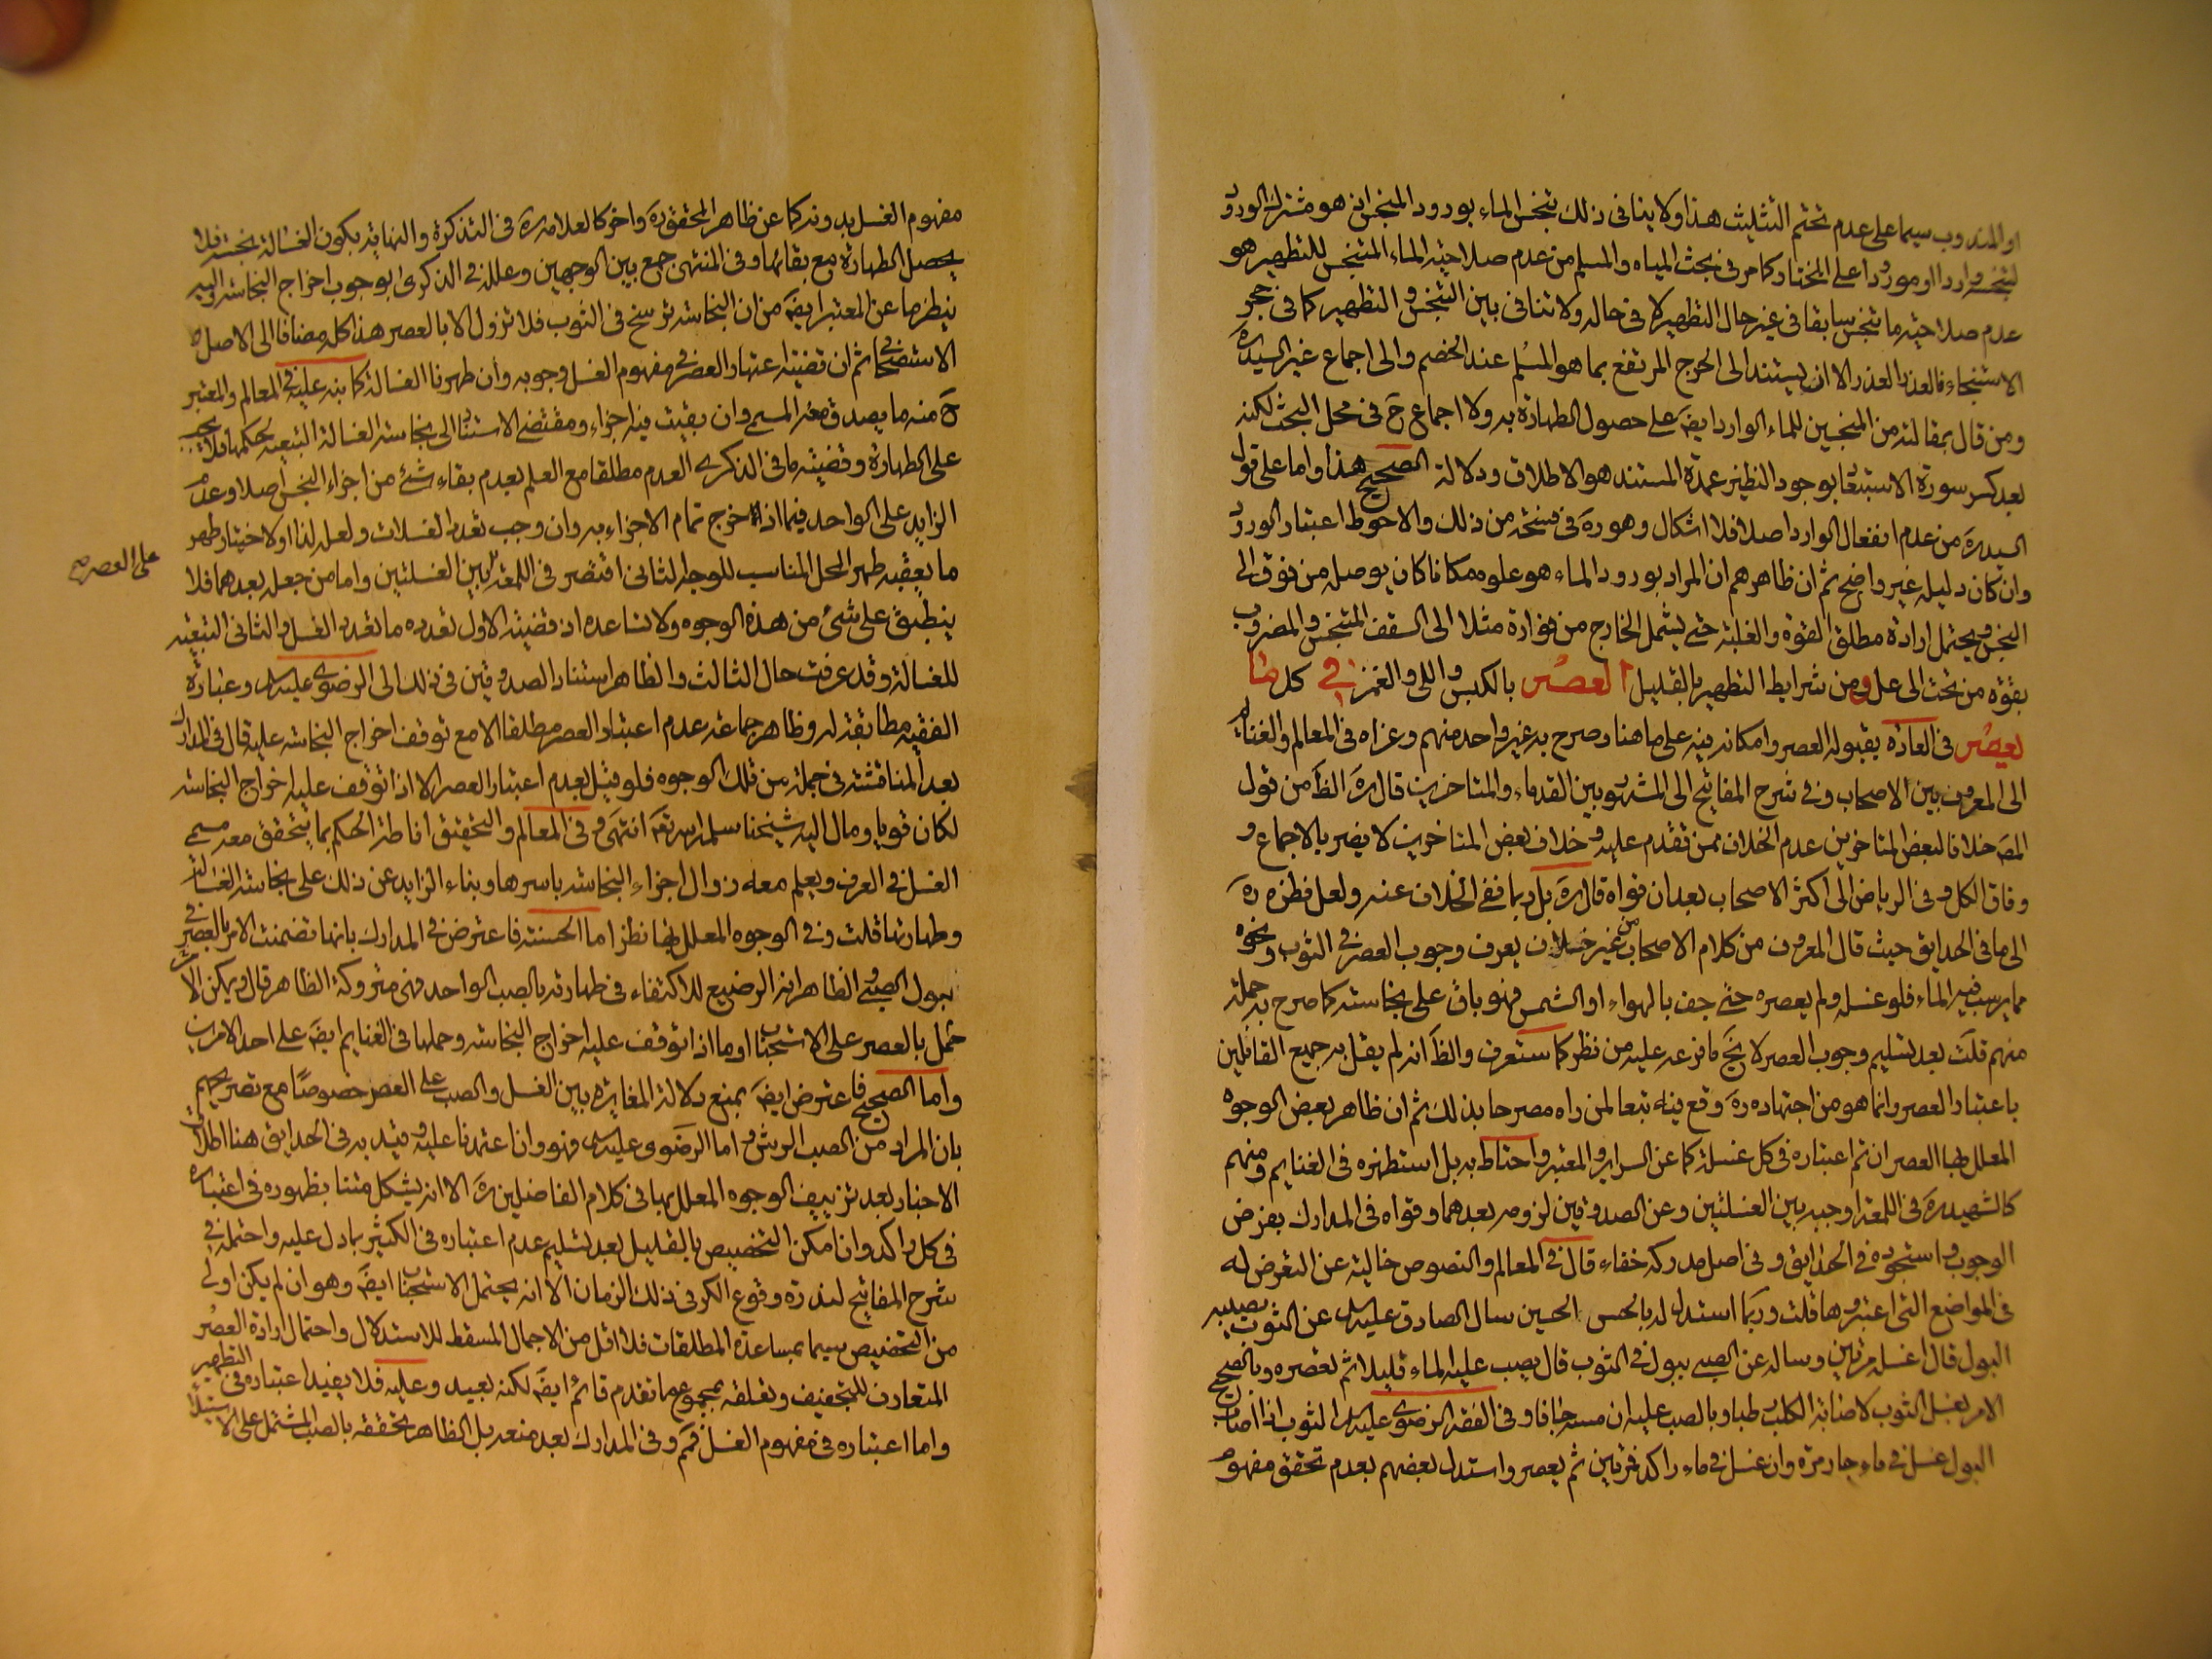 او المندوب سيما على عدم تحتم التثليث هذا ولا ينافى ذلك تنجس الماء بورود المنجس اذ هو مشترك الورود
لتنجسه واردا او مورودا على المختار كما مر فى بحث المياه والمسلم من عدم صلاحية الماء المتنجس للتطهير هو
عدم صلاحية ما تنجس سابقا فى غير حال التطهير لا فى حاله ولا تنافى بين التنجس والتطهير كما فى حجر
الاستنجاء فالعذر العذر الا ان يستند الى الحرج المرتفع بما هو المسلم عند الخصم والى اجماع غير السيد ره
ومن قال بمقالته من المنجسين للماء الوارد ايض على حصول الطهارة به ولا اجماع ح فى محل البحث لكنه
بعد كسر سورة الاستبعاد بوجود النظير عمدة المستند هو الاطلاق ودلالة الصحيح هذا واما على قول
السيد ره من عدم انفعال الوارد اصلا فلا اشكال وهو ره فى فسحة من ذلك والاحوط اعتبار الورود
وان كان دليله غير واضح ثم ان ظاهرهم ان المراد بورود الماء هو علوه مكانا كان يوصله من فوق الى
النجس ويحتمل ارادة مطلق القوة والغلبة حتى يشمل الخارج من فوارة مثلا الى السقف المتنجس والمضروب
بقوة من تحت الى على ومن شرايط التطهير بالقليل العصر بالكبس واللى والغمز فى كل ما
يعصر فى العادة بقبوله العصر وامكانه فيه على ما هنا وصرح به غير واحد منهم وعزاه فى المعالم والغنايم
الى المعروف بين الاصحاب وفى شرح المفاتيح الى المشهور بين القدماء والمتاخرين قال ره الظ من قول
المص خلافا لبعض المتاخرين عدم الخلاف ممن تقدم عليه وخلاف بعض المتاخرين لا يضر بالاجماع و
وفاق الكل وفى الرياض الى اكثر الاصحاب بعد ان قواه قال ره بل ربما نفى الخلاف عنه ولعل نظره ره
الى ما فى الحدايق حيث قال المعروف من كلام الاصحاب من غير خلاف يعرف وجوب العصر فى الثوب ونحوه
مما يرسب فيه الماء فلو غسله ولم يعصره حتى جف بالهواء او الشمس فهو باق على نجاسته كما صرح به جملة
منهم قلت بعد تسليم وجوب العصر لا يخ ما فرعه عليه من نظر كما ستعرف والظ انه لم يقل به جميع القائلين
باعتبار العصر وانما هو من اجتهاده ره وقع فيه تبعا لمن راه مصرحا بذلك ثم ان ظاهر بعض الوجوه
المعلل بها العصر ان تم اعتباره فى كل غسلة كما عن السراير والمعتبر واحتاط به بل استظهره فى الغنايم ومنهم
كالشهيد ره فى اللمعة اوجبه بين الغسلتين وعن الصدوقين لزومه بعدهما وقواه فى المدارك بفرض
الوجوب واستجوده فى الحدايق وفى اصل مدركه خفاء قال فى المعالم والنصوص خالية عن التعرض له
فى المواضع التى اعتبروها قلت وربما استدل له بالحسن الحسين سال الصادق عليه السلام عن الثوب يصيبه
البول قال اغسل مرتين وساله عن الصبى يبول فى الثوب قال يصب عليه الماء قليلا ثم تعصره وبالصحيح
الامر بغسل الثوب لاصابة الكلب رطبا وبالصب عليه ان مسه جافا وفى الفقه الرضوى عليه السلام الثوب اذا اصاب
البول غسل فى ماء جار مرة وان غسل فى ماء راكد فمرتين ثم يعصر واستدل بعضهم بعدم تحقق مفهوم
مفهوم الغسل بدونه كما عن ظاهر المحقق ره واخر كالعلامه ره فى التذكرة والنهايه بكون الغسالة نجسة فلا
يحصل الطهارة مع بقائها وفى المنتهى جمع بين الوجهين وعلله فى الذكرى بوجوب اخراج النجاسة واليه
ينظر ما عن المعتبر ايض من ان النجاسة ترسخ فى الثوب فلا تزول الا بالعصر هذا كله مضافا الى الاصل و
الاستصحاب ثم ان قضية اعتبار العصر فى مفهوم الغسل وجوبه وان طهرنا الغسالة كما نبه عليه فى المعالم والمعتبر
ح منه ما يصدق معه المسمى وان بقيت فيه اجزاء ومقتضى الاستناد الى نجاسة الغسالة التبعية لحكمها فلا يجب
على الطهارة وقضية ما فى الذكرى العدم مطلقا مع العلم بعدم بقاء شئ من اجزاء النجس اصلا وعدم
الزايد على الواحد فيما اذا خرج تمام الاجزاء به وان وجب تعدد الغسلات ولعله لذا او لاختيار طهر
ما يعقبه طهر المحل المناسب للوجه الثانى اقتصر فى اللمعة بين الغسلتين واما من جعل بعدهما فلا
على العصر صح
ينطبق على شئ من هذه الوجوه ولا تساعده اذ قضية الاول تعدده ما تعدد الغسل والثانى التبعية
للغسالة وقد عرفت حال الثالث والظاهر استناد الصدوقين فى ذلك الى الرضوى عليه السلام وعبارة
الفقيه مطابقة له وظاهر جماعة عدم اعتبار العصر مطلقا الا مع توقف اخراج النجاسة عليه قال فى المدارك
بعد المناقشة فى جملة من تلك الوجوه فلو قيل بعدم اعتبار العصر الا اذا توقف عليه اخراج النجاسة
لكان قويا ومال اليه شيخنا سلمه الله تع انتهى وفى المعالم والتحقيق اناطة الحكم بما يتحقق معه مسمى
الغسل فى العرف ويعلم معه زوال اجزاء النجاسة باسرها وبناء الزايد عن ذلك على نجاسة الغسالة
وطهارتها قلت وفى الوجوه المعلل بها نظر اما الحسنة فاعترض فى المدارك بانها تضمنت الامر بالعصر فى
بول الصبى والظاهر انه الرضيع للاكتفاء فى طهارته بالصب الواحد فهى متروكة الظاهر قال ويمكن ان
حمل بالعصر على الاستحباب او ما اذا توقف عليه اخراج النجاسة وحملها فى الغنايم ايض على احد الامرين
واما الصحيح فاعترض ايض بمنع دلالة المغايرة بين الغسل والصب على العصر خصوصا مع تصريحهم
بان المراد من الصب الرش واما الرضوى عليه السلام فهو وان اعتمدنا عليه وقيد به فى الحدايق هنا اطلاق
الاخبار بعد تزييف الوجوه المعلل بها فى كلام الفاضلين ره الا انه يشكل متنا بظهوره فى اعتباره
فى كل راكد وان امكن التخصيص بالقليل بعد تسليم عدم اعتباره فى الكثير بما دل عليه واحتمله فى
شرح المفاتيح لندرة وقوع الكر فى ذلك الزمان الا انه يحتمل الاستحباب ايض وهو ان لم يكن اولى
من التخصيص سيما بمساعدة المطلقات فلا اقل من الاجمال المسقط للاستدلال واحتمال ارادة العصر
المتعارف للتجفيف وتعلقه بمجموع ما تقدم قائم ايض لكنه بعيد وعليه فلا يفيد اعتباره فى التطهير
واما اعتباره فى مفهوم الغسل فمم وفى المدارك بعد منعه بل الظاهر تحققه بالصب المشتمل على الاستيلاء